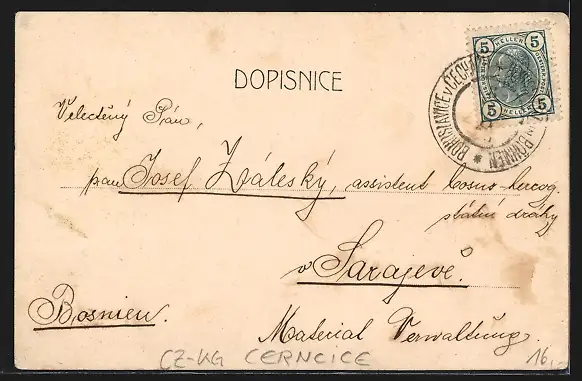 DOPISNICE
5 HELLER 5
5 HELLER 5
Velectěný Pán,
pan Josef Záleský, assistent bosns-herceg.
státní dráhy
v Sarajevě.
Bosnien.
Material Verwaltung
CZ-KG CERNCICE
16,